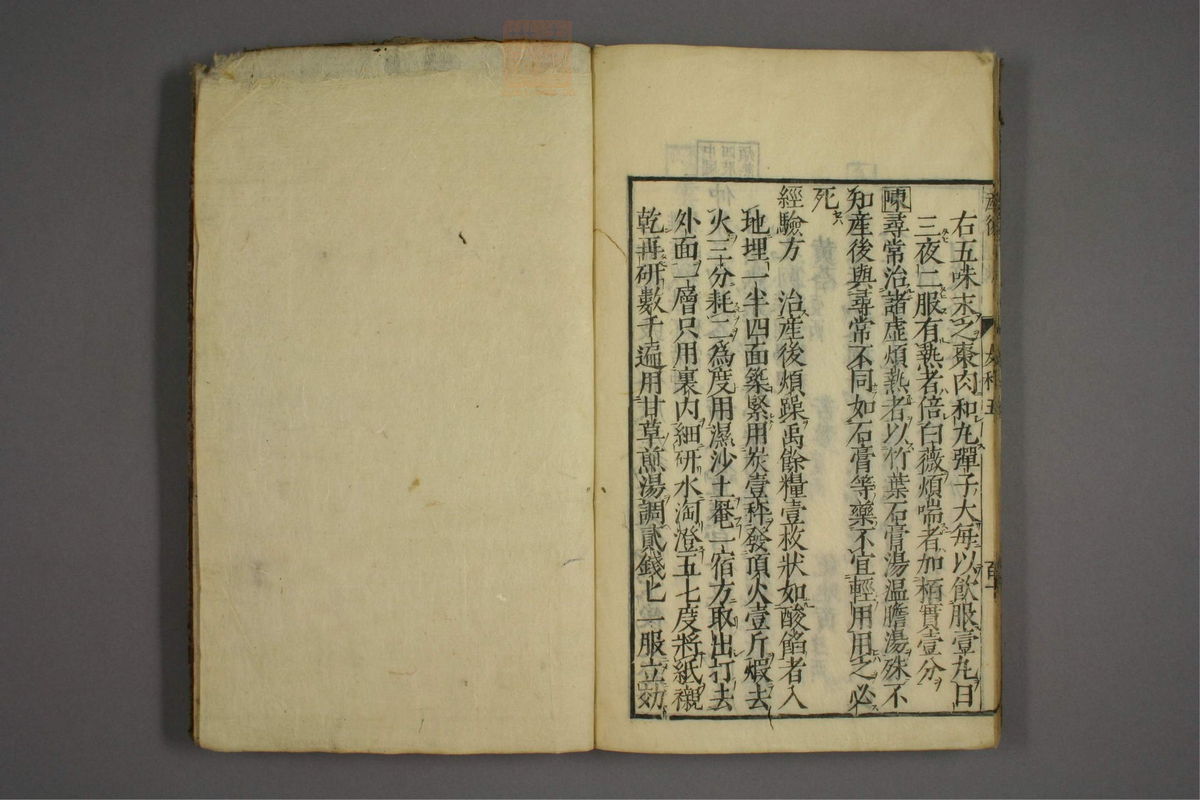 右五味末之棗肉和丸彈子大每以飲服壹丸日
三夜二服有熱者倍白薇煩喘者加栢實壹分
陳尋常治諸虛煩熱者以竹葉石膏湯温膽湯殊不
知産後與尋常不同如石膏等藥不宜輕用用之必
死
經驗方　治産後煩躁禹餘糧壹枚狀如酸餡者入
地埋一半四面築緊用炭壹秤發頂火壹斤煆去
火三分耗二為度用濕沙土罨一宿方取出打去
外面一層只用裏內細研水淘澄五七度將紙襯
乾再研數千遍用甘草煎湯調貳錢匕一服立効